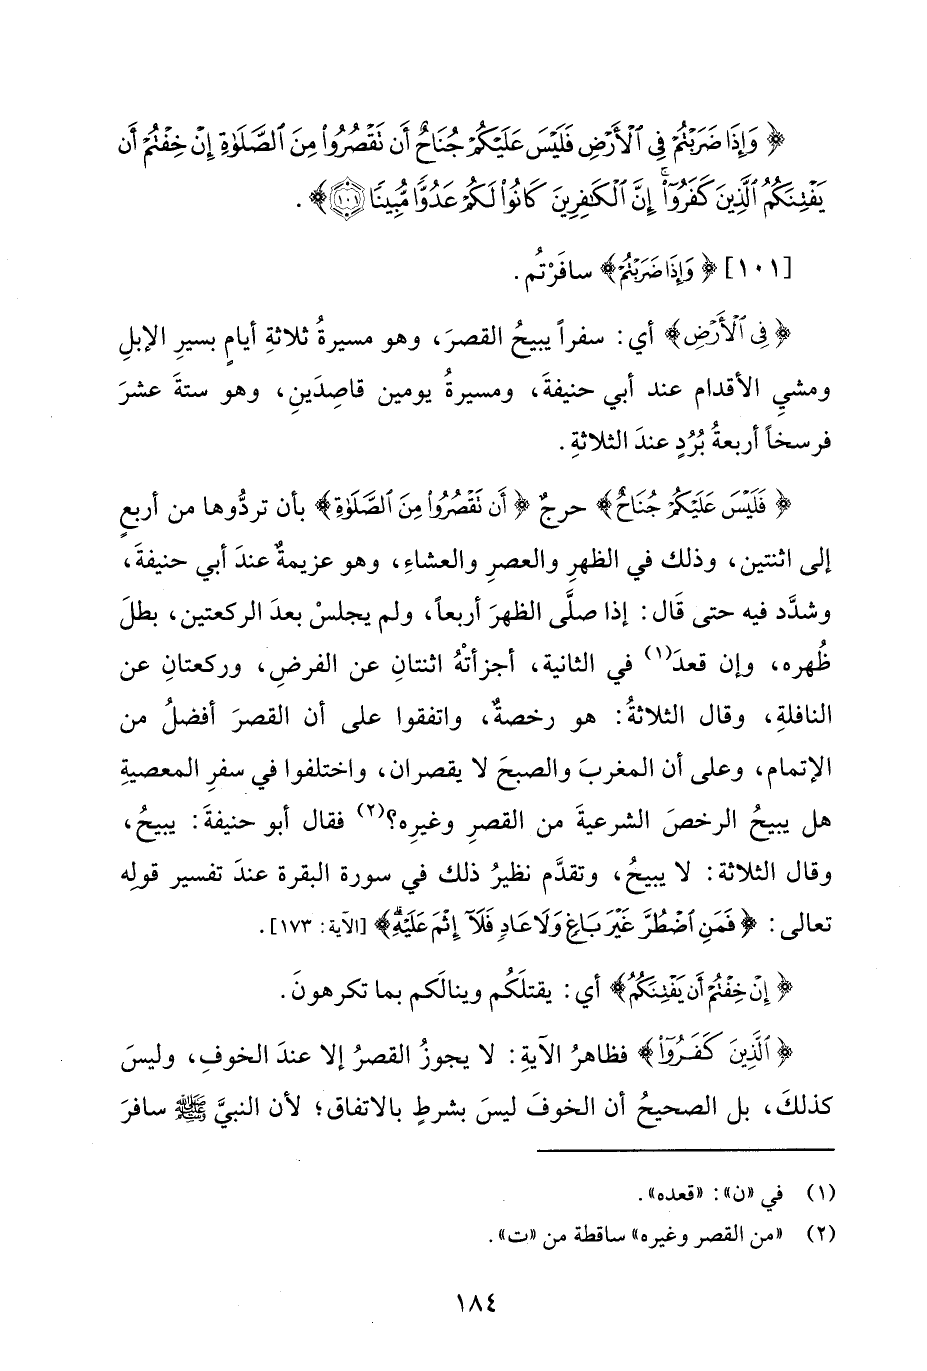 ﴿ وَإِذَا ضَرَبْتُمْ فِي ٱلْأَرْضِ فَلَيْسَ عَلَيْكُمْ جُنَاحٌ أَن نَقْصُرُوا۟ مِنَ ٱلصَّلَوٰةِ إِنْ خِفْتُمْ أَن
يَفْتِنَكُمُ ٱلَّذِينَ كَفَرُوٓا۟ ۚ إِنَّ ٱلْكَـٰفِرِينَ كَانُوا۟ لَكُمْ عَدُوًّا مُّبِينًا ١٠١ ﴾ .
[١٠١] ﴿ وَإِذَا ضَرَبْتُمْ ﴾ سافَرْتُم .
﴿ فِي ٱلْأَرْضِ ﴾ أي : سفراً يبيحُ القصرَ، وهو مسيرةُ ثلاثةِ أيامٍ بسيرِ الإبلِ
ومشيِ الأقدام عند أبي حنيفةَ، ومسيرةُ يومين قاصِدَينِ، وهو ستةَ عشرَ
فرسخاً أربعةُ بُرُدٍ عندَ الثلاثةِ .
﴿ فَلَيْسَ عَلَيْكُمْ جُنَاحٌ ﴾ حرجٌ ﴿ أَن نَقْصُرُوا۟ مِنَ ٱلصَّلَوٰةِ ﴾ بأن تردُّوها من أربعٍ
إلى اثنتين، وذلك في الظهرِ والعصرِ والعشاءِ، وهو عزيمةٌ عندَ أبي حنيفةَ،
وشدَّد فيه حتى قَال : إذا صلَّى الظهرَ أربعاً، ولم يجلسْ بعدَ الركعتين، بطلَ
ظُهره، وإن قعدَ(١) في الثانية، أجزأتْهُ اثنتانِ عن الفرضِ، وركعتانِ عن
النافلةِ، وقال الثلاثةُ : هو رخصةٌ، واتفقوا على أن القصرَ أفضلُ من
الإتمام، وعلى أن المغربَ والصبحَ لا يقصران، واختلفوا في سفرِ المعصيةِ
هل يبيحُ الرخصَ الشرعيةَ من القصرِ وغيرِه؟(٢) فقال أبو حنيفةَ : يبيحُ،
وقال الثلاثة : لا يبيحُ، وتقدَّم نظيرُ ذلك في سورة البقرة عندَ تفسير قولِه
تعالى : ﴿ فَمَنِ ٱضْطُرَّ غَيْرَ بَاغٍ وَلَا عَادٍ فَلَآ إِثْمَ عَلَيْهِ ﴾ [الآية : ١٧٣] .
﴿ إِنْ خِفْتُمْ أَن يَفْتِنَكُمُ ﴾ أي : يقتلَكُم وينالَكم بما تكرهونَ .
﴿ ٱلَّذِينَ كَفَرُوٓا۟ ﴾ فظاهرُ الآيةِ : لا يجوزُ القصرُ إلا عندَ الخوفِ، وليسَ
كذلكَ، بل الصحيحُ أن الخوفَ ليسَ بشرطٍ بالاتفاق؛ لأن النبيَّ ﷺ سافرَ
(١) في «ن» : «قعده» .
(٢) «من القصر وغيره» ساقطة من «ت» .
١٨٤